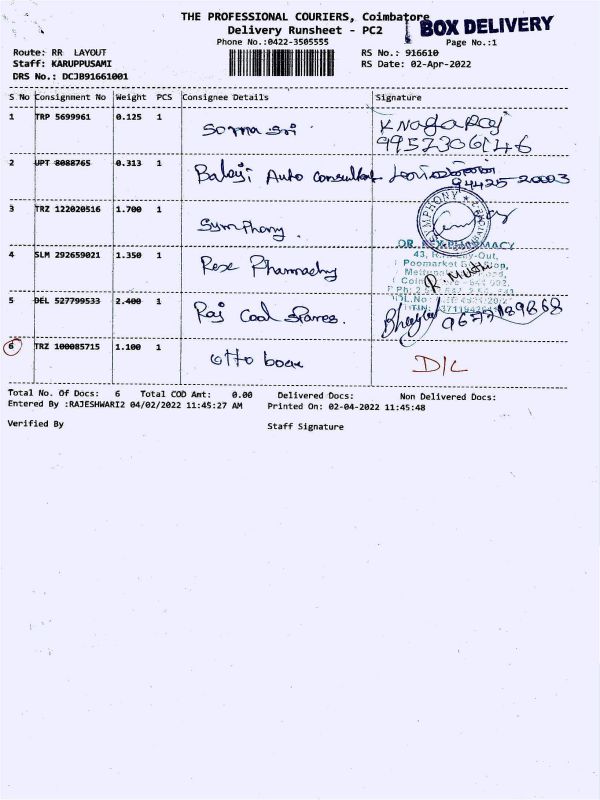 THE PROFESSIONAL COURIERS, Coimbatore
Delivery Runsheet - PC2
BOX DELIVERY
Phone No.:0422-3505555
Page No.:1
Route: RR LAYOUT
RS No.: 916610
Staff: KARUPPUSAMI
RS Date: 02-Apr-2022
DRS No.: DCJB91661001
S No Consignment No Weight PCS Consignee Details Signature
1 TRP 5699961 0.125 1
K Nagaraj
9952306146
2 UPT 8088765 0.313 1 Balaji Auto consultant
94425 20003
3 TRZ 122020516 1.700 1 Symphony.
4 SLM 292659021 1.350 1 Rex Pharmacy
5 DEL 527799533 2.400 1 Raj Cool Spares.
9677189868
6 TRZ 100085715 1.100 1 otto bock D/L
Total No. Of Docs: 6 Total COD Amt: 0.00 Delivered Docs: Non Delivered Docs:
Entered By :RAJESHWARI2 04/02/2022 11:45:27 AM Printed On: 02-04-2022 11:45:48
Verified By Staff Signature